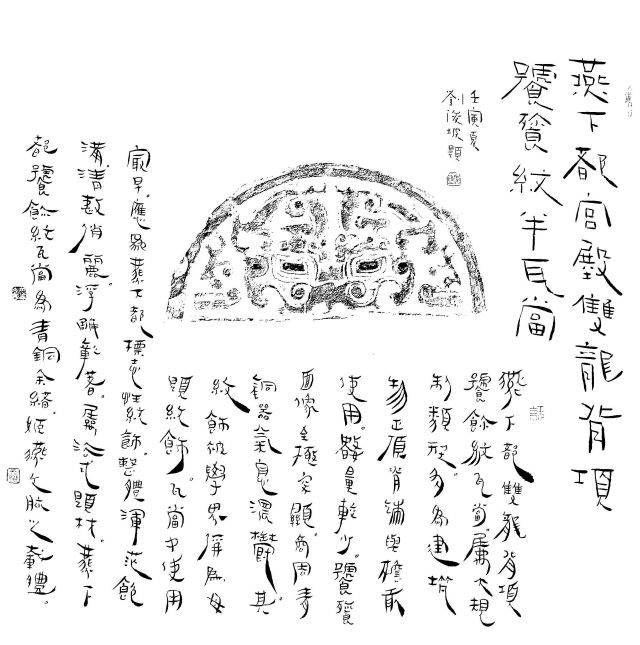 燕下都宮殿雙龍背項
饕餮紋半瓦當
壬寅夏
劉俊坡題
燕下都雙龍背項
饕餮紋瓦當屬大規
制類型多為建筑
使用數量較少饕餮
面像至極突顯商周青
銅器氣息濃鬱其
紋飾被學界稱為母
題紋飾瓦當中使用
最早應為燕下都標志性紋飾整體渾茫飽
滿清款俏麗浮雕彰著屬浴式題材燕下
都饕餮紋瓦當為青銅余緒姬燕文脈之載體